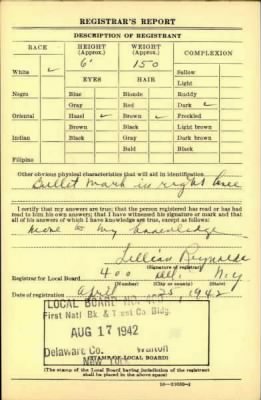 REGISTRAR'S REPORT
DESCRIPTION OF REGISTRANT
RACE HEIGHT (Approx.) WEIGHT (Approx.) COMPLEXION
6' 150
White ✓ Sallow
EYES HAIR Light
Negro Blue Blonde Ruddy
Gray Red Dark ✓
Oriental Hazel ✓ Brown ✓ Freckled
Brown Black Light brown
Indian Black Gray Dark brown
Bald Black
Filipino
Other obvious physical characteristics that will aid in identification
Bullet mark in right knee
I certify that my answers are true; that the person registered has read or has had
read to him his own answers; that I have witnessed his signature or mark and that
all of his answers of which I have knowledge are true, except as follows:
None to my knowledge
Lillian Reynolds
(Signature of registrar)
Registrar for Local Board 400 Del. N.Y
(Number) (City or county) (State)
Date of registration April 25, 1942
LOCAL BOARD NO.
First Natl Bk. & Trust Co. Bldg.
AUG 17 1942
Delaware Co. Walton
New York
(STAMP OF LOCAL BOARD)
(The stamp of the Local Board having jurisdiction of the registrant
shall be placed in the above space)